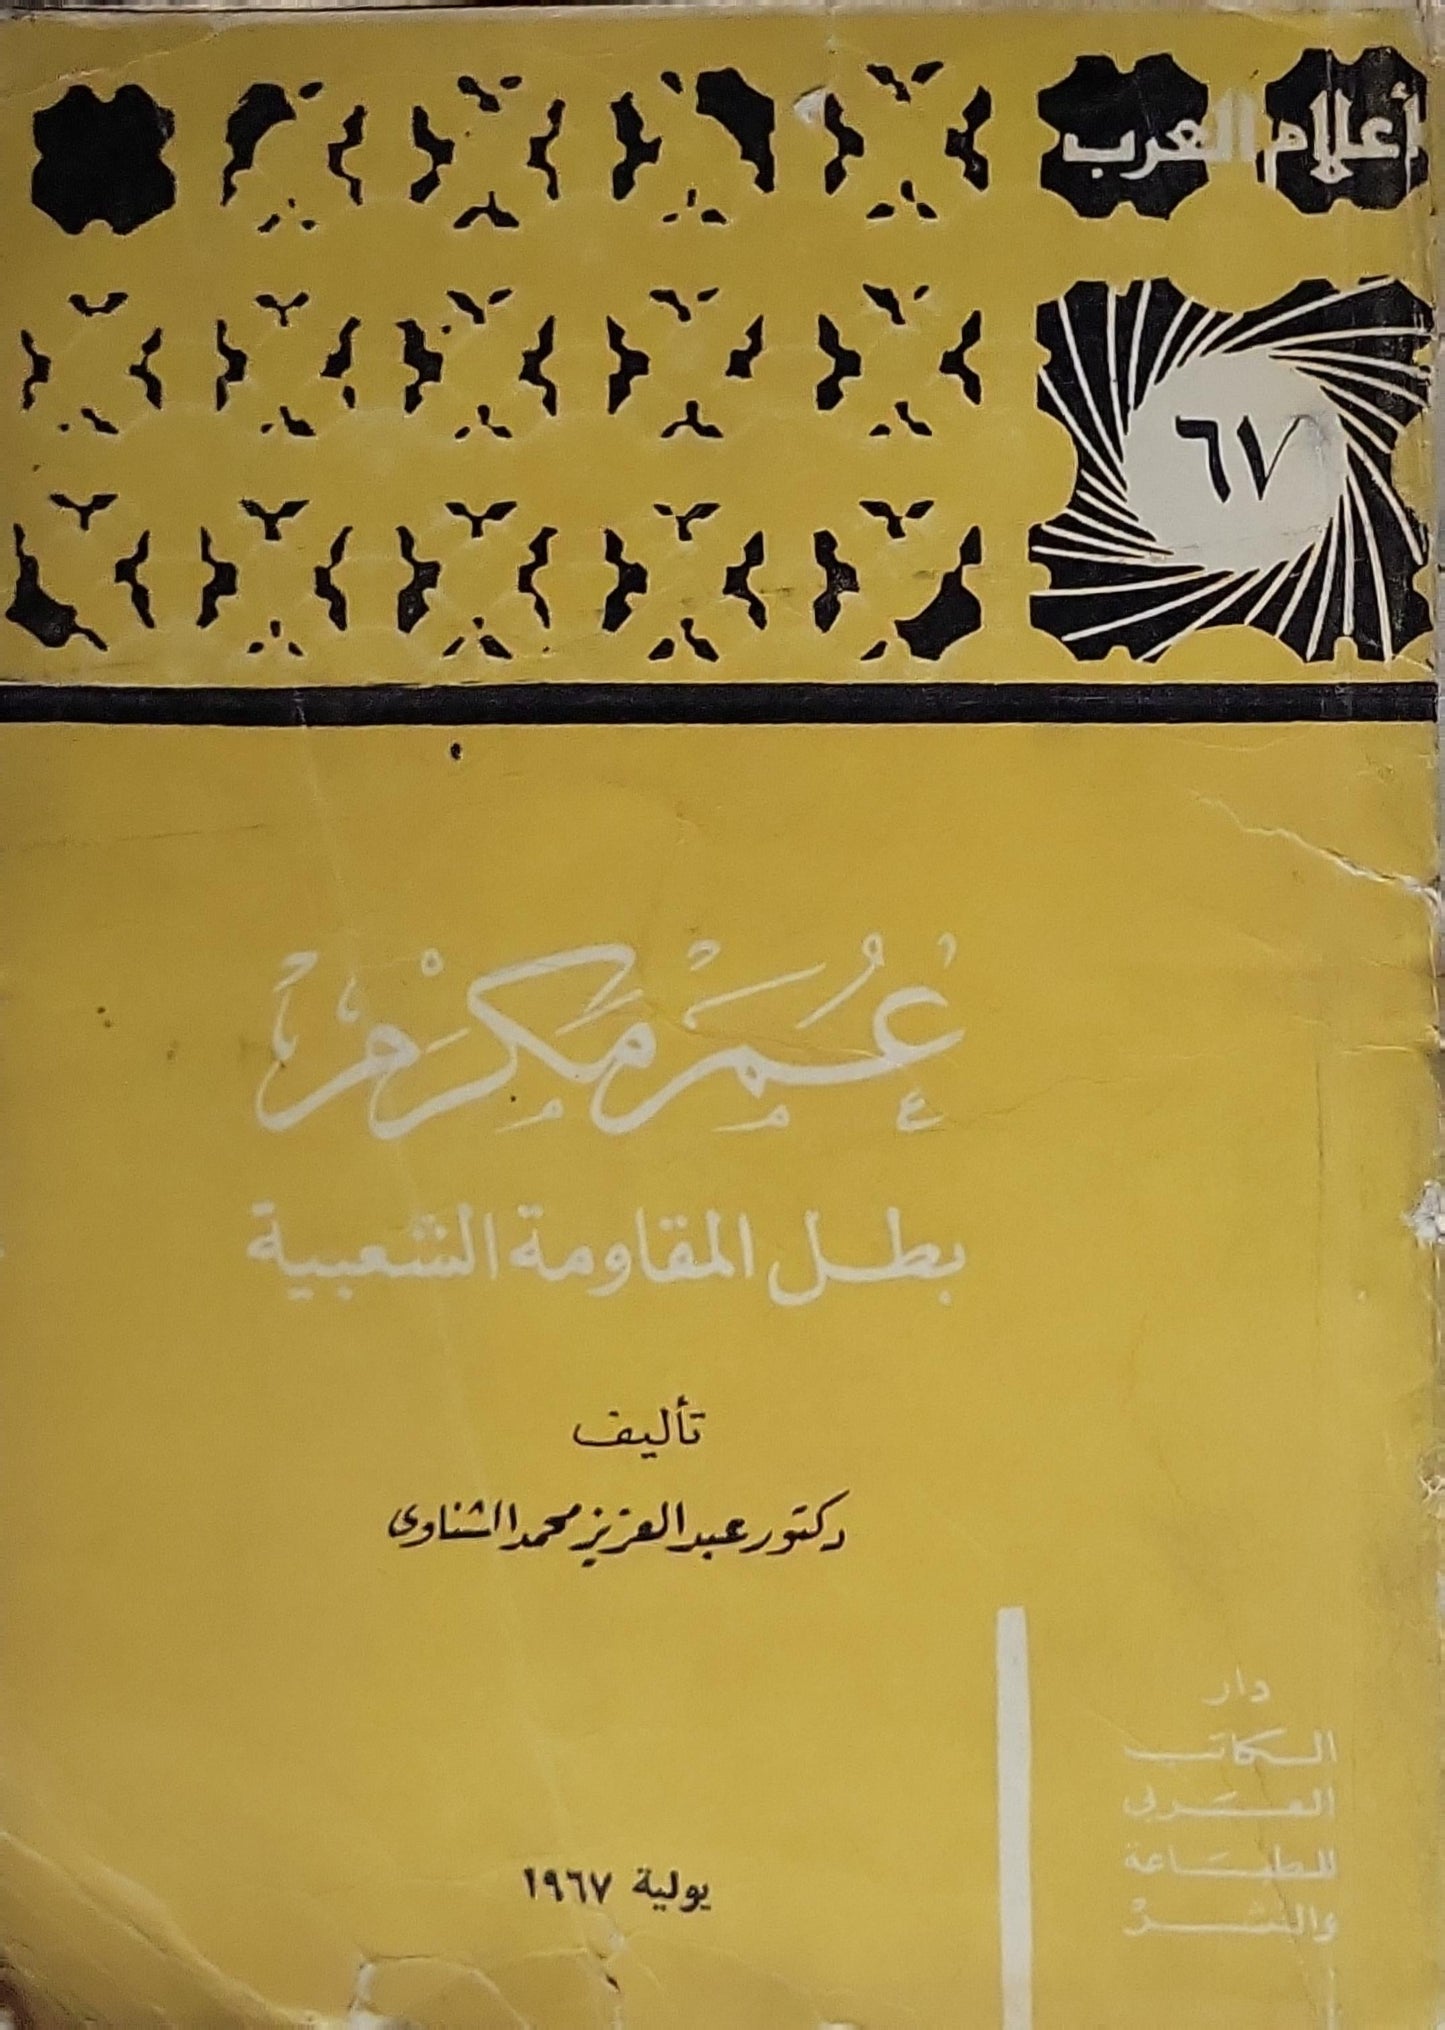 أعلام العرب
٦٧
عُمَرْ مَكْرَمْ
بطل المقاومة الشعبية
تأليف
دكتور عبد العزيز محمد الشناوى
يولية ١٩٦٧
دار
الكاتب
العربى
للطباعة
والنشر